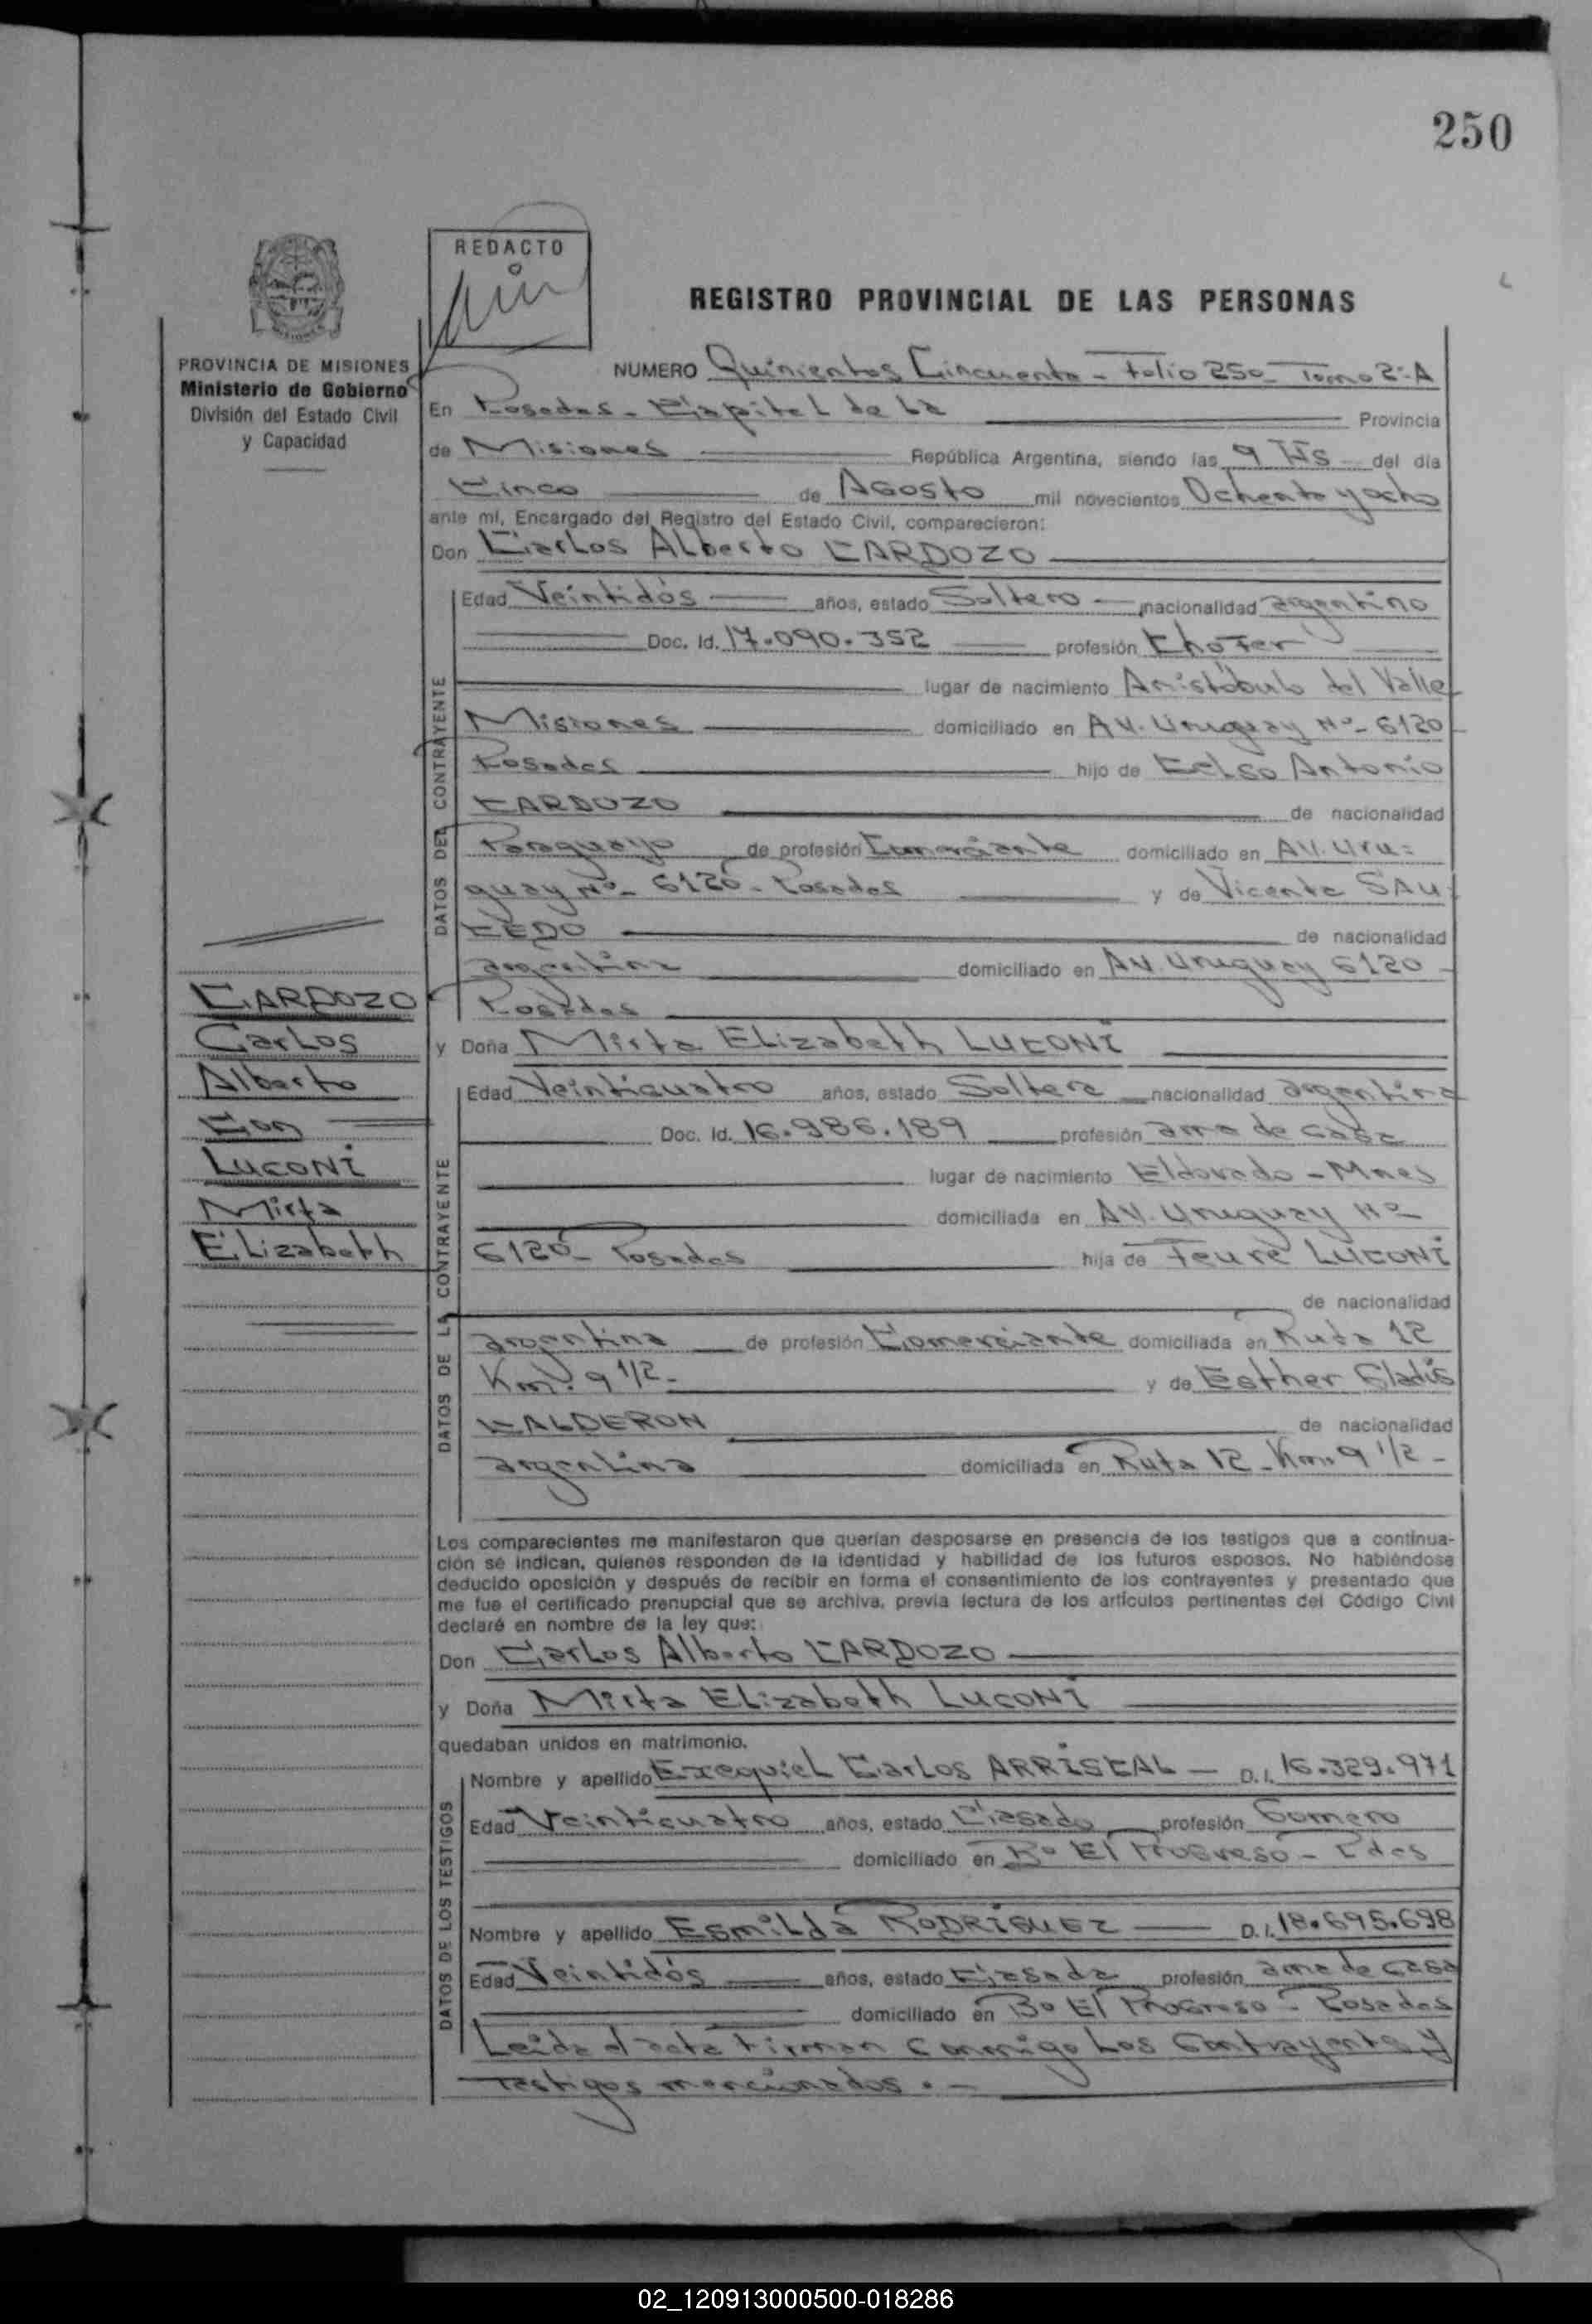 250
REDACTO
REGISTRO PROVINCIAL DE LAS PERSONAS
PROVINCIA DE MISIONES
Ministerio de Gobierno
División del Estado Civil
y Capacidad
NUMERO Quinientos Cincuenta - Folio 250 - Tomo 2º A
En Posadas - Capital de la Provincia
de Misiones República Argentina, siendo las 9 Hs del día
Cinco de Agosto mil novecientos Ochenta y ocho
ante mí, Encargado del Registro del Estado Civil, comparecieron:
Don Carlos Alberto CARDOZO
DATOS DEL CONTRAYENTE
Edad Veintidós años, estado Soltero nacionalidad argentino
Doc. Id. 17.090.352 profesión Chofer
lugar de nacimiento Aristóbulo del Valle
Misiones domiciliado en AV. Uruguay Nº- 6120
Posadas hijo de Celso Antonio
CARDOZO de nacionalidad
Paraguayo de profesión Comerciante domiciliado en AV. Uru=
guay Nº- 6120 - Posadas y de Vicenta SAU
CEDO de nacionalidad
argentina domiciliado en AV. Uruguay 6120
Posadas
y Doña Mirta Elizabeth LUCONI
CARDOZO
Carlos
Alberto
Con
LUCONI
Mirta
Elizabeth
DATOS DE LA CONTRAYENTE
Edad Veinticuatro años, estado Soltera nacionalidad argentina
Doc. Id. 16.986.189 profesión ama de casa
lugar de nacimiento Eldorado - Mnes
domiciliada en AV. Uruguay Nº
6120 - Posadas hija de Feure LUCONI
de nacionalidad
argentina de profesión Comerciante domiciliada en Ruta 12
Km. 9 1/2 - y de Esther Gladis
CALDERON de nacionalidad
argentina domiciliada en Ruta 12 - Km. 9 1/2 -
Los comparecientes me manifestaron que querían desposarse en presencia de los testigos que a continua-
ción se indican, quienes responden de la identidad y habilidad de los futuros esposos. No habiéndose
deducido oposición y después de recibir en forma el consentimiento de los contrayentes y presentado que
me fue el certificado prenupcial que se archiva, previa lectura de los artículos pertinentes del Código Civil
declaré en nombre de la ley que:
Don Carlos Alberto CARDOZO
y Doña Mirta Elizabeth LUCONI
quedaban unidos en matrimonio.
DATOS DE LOS TESTIGOS
Nombre y apellido Exequiel Carlos ARRISCAL - D.I. 16.329.971
Edad Veinticuatro años, estado Casado profesión Gomero
domiciliado en Bº El Progreso - Pdas
Nombre y apellido Esmilda RODRIGUEZ D.I. 18.695.698
Edad Veintidós años, estado Casada profesión ama de casa
domiciliado en Bº El Progreso - Posadas
Leida el acta firman conmigo Los Contrayentes y
testigos mencionados . -
02_120913000500-018286